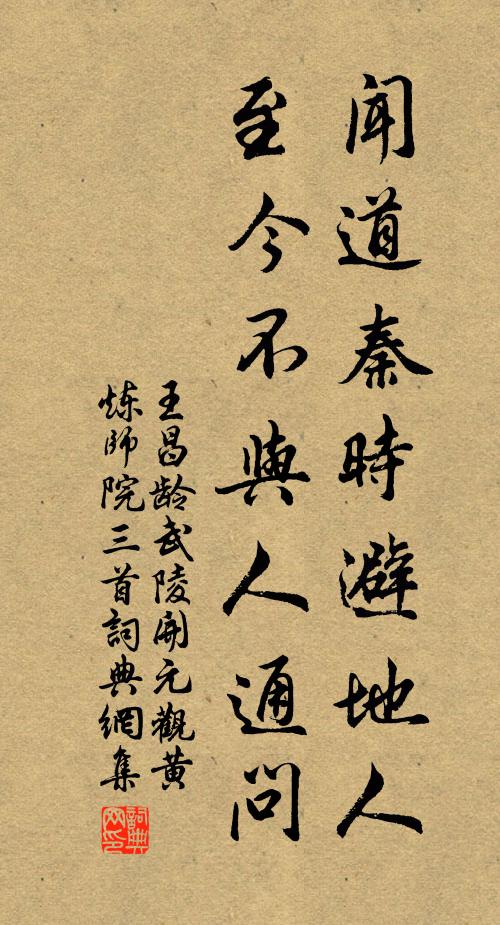 闻道秦時避地人
至今不與人通問
王昌龄武陵開元觀黄
炼師院三首詞典網集
詞典网印